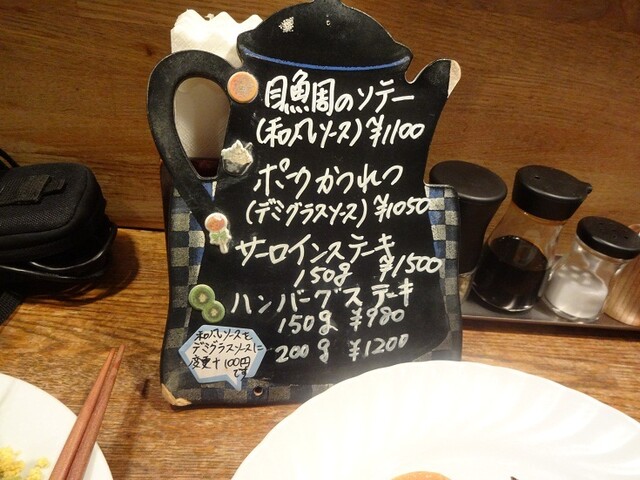 目鯛のソテー
(和風ソース)¥1100
ポークかつれつ
(デミグラスソース)¥1050
サーロインステーキ
150g ¥1500
ハンバーグステーキ
150g ¥980
200g ¥1200
和風ソースを
デミグラスソースに
変更+100円
です